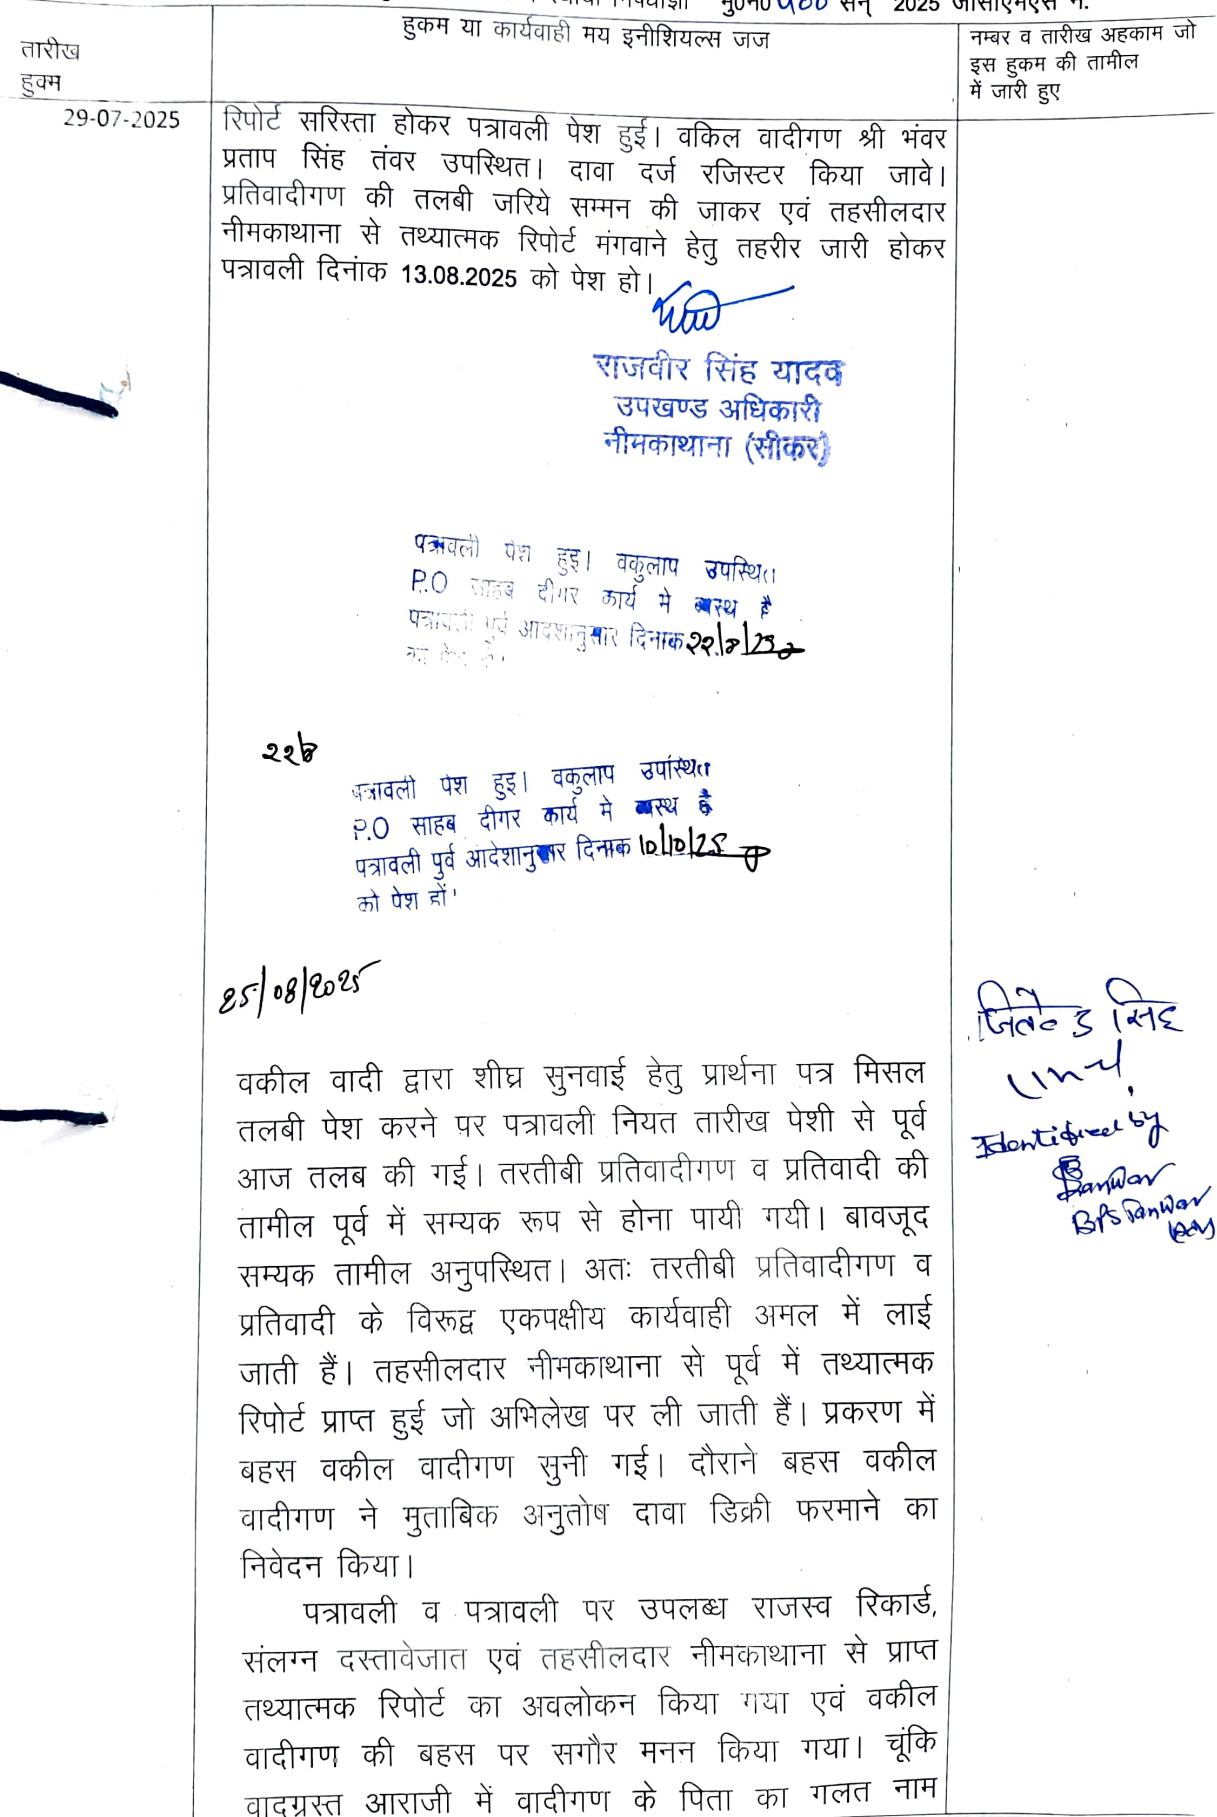 मु0न0 400 सन् 2025 जीसीएमएस नं.
तारीख
हुक्म
हुकम या कार्यवाही मय इनीशियल्स जज
नम्बर व तारीख अहकाम जो
इस हुकम की तामील
में जारी हुए
29-07-2025
रिपोर्ट सरिस्ता होकर पत्रावली पेश हुई। वकिल वादीगण श्री भंवर
प्रताप सिंह तंवर उपस्थित। दावा दर्ज रजिस्टर किया जावे।
प्रतिवादीगण की तलबी जरिये सम्मन की जाकर एवं तहसीलदार
नीमकाथाना से तथ्यात्मक रिपोर्ट मंगवाने हेतु तहरीर जारी होकर
पत्रावली दिनांक 13.08.2025 को पेश हो।
राजवीर सिंह यादव
उपखण्ड अधिकारी
नीमकाथाना (सीकर)
पत्रावली पेश हुइ। वकुलाप उपस्थित
P.O साहब दीगर कार्य मे व्यस्थ है
पत्रावली पुर्व आदेशानुसार दिनाक 22/8/25
22/8
पत्रावली पेश हुइ। वकुलाप उपस्थित
P.O साहब दीगर कार्य मे व्यस्थ है
पत्रावली पुर्व आदेशानुसार दिनाक 10/10/25
को पेश हों
25/08/2025
जितेन्द्र सिंह
Identified by
Banwar
BPS Tanwar
वकील वादी द्वारा शीघ्र सुनवाई हेतु प्रार्थना पत्र मिसल
तलबी पेश करने पर पत्रावली नियत तारीख पेशी से पूर्व
आज तलब की गई। तरतीबी प्रतिवादीगण व प्रतिवादी की
तामील पूर्व में सम्यक रूप से होना पायी गयी। बावजूद
सम्यक तामील अनुपस्थित। अतः तरतीबी प्रतिवादीगण व
प्रतिवादी के विरूद्व एकपक्षीय कार्यवाही अमल में लाई
जाती हैं। तहसीलदार नीमकाथाना से पूर्व में तथ्यात्मक
रिपोर्ट प्राप्त हुई जो अभिलेख पर ली जाती हैं। प्रकरण में
बहस वकील वादीगण सुनी गई। दौराने बहस वकील
वादीगण ने मुताबिक अनुतोष दावा डिक्री फरमाने का
निवेदन किया।
पत्रावली व पत्रावली पर उपलब्ध राजस्व रिकार्ड,
संलग्न दस्तावेजात एवं तहसीलदार नीमकाथाना से प्राप्त
तथ्यात्मक रिपोर्ट का अवलोकन किया गया एवं वकील
वादीगण की बहस पर सगौर मनन किया गया। चूंकि
वादग्रस्त आराजी में वादीगण के पिता का गलत नाम